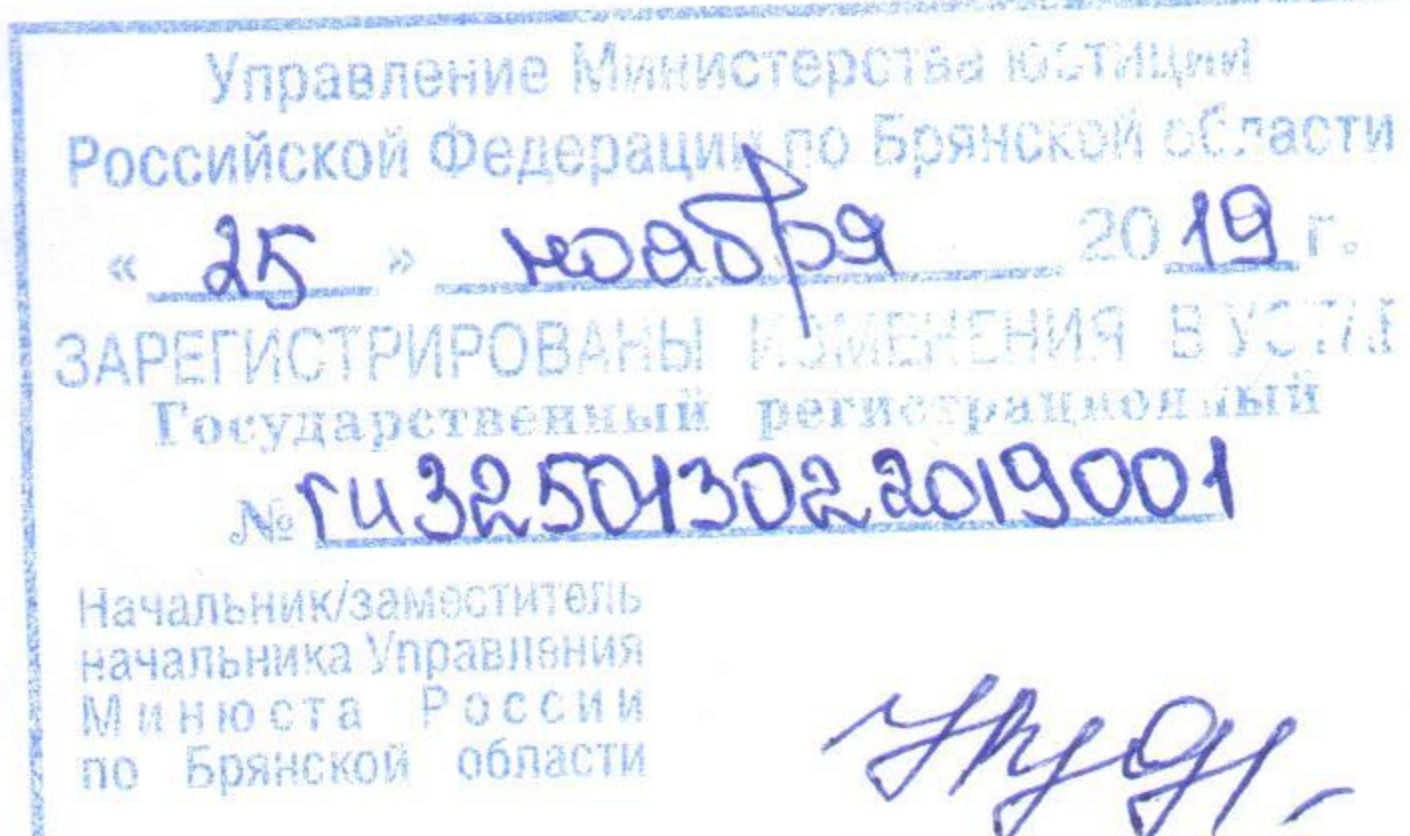 Управление Министерства юстиции
Российской Федерации по Брянской области
« 25 » ноября 2019 г.
ЗАРЕГИСТРИРОВАНЫ ИЗМЕНЕНИЯ В УСТАВ
Государственный регистрационный
№ ru325013022019001
Начальник/заместитель
начальника Управления
Минюста России
по Брянской области